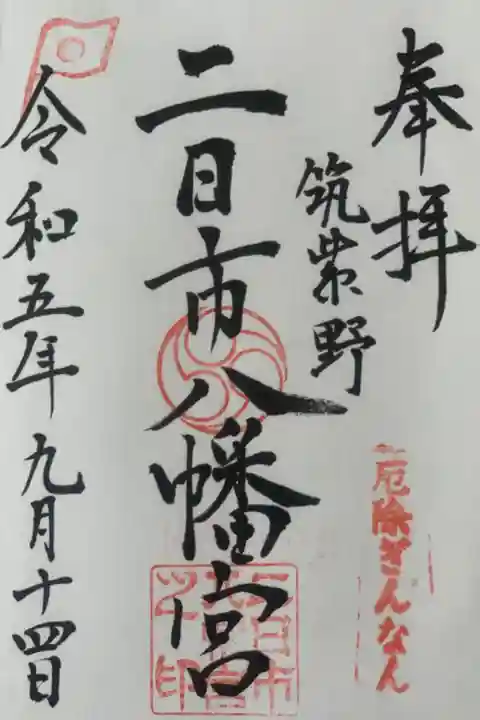 奉拝
筑紫野
二日市八幡宮
令和五年九月十四日
厄除ぎんなん
二日市
八幡宮
之印